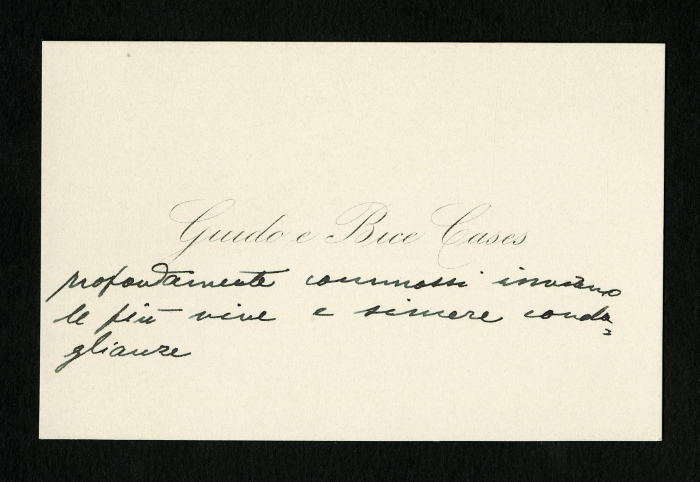 Guido e Bice Cases
profondamente commossi inviano
le più vive e sincere condo=
glianze